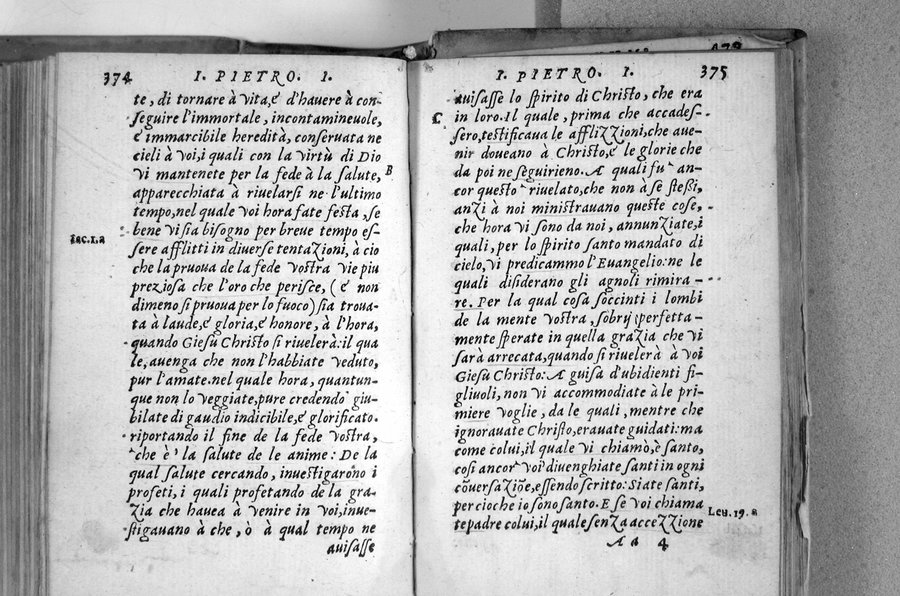 374 I. PIETRO. I.
te, di tornare à vita, e' d'hauere à con-
seguire l'immortale, incontamineuole,
e' immarcibile heredità, conseruata ne
cieli à voi, i quali con la virtù di Dio
vi mantenete per la fede à la salute,
B
apparecchiata à riuelarsi ne l'ultimo
tempo, nel quale voi hora fate festa, se
bene vi sia bisogno per breue tempo es-
Iac.1.a
sere afflitti in diuerse tentazioni, à cio
che la pruoua de la fede vostra vie piu
preziosa che l'oro che perisce, (e' non
dimeno si pruoua per lo fuoco) sia troua-
ta à laude, e' gloria, e' honore, à l'hora,
quando Giesu Christo si riuelerà: il qua
le, auenga che non l'habbiate veduto,
pur l'amate. nel quale hora, quantun-
que non lo veggiate, pure credendo giu-
bilate di gaudio indicibile, e' glorificato.
riportando il fine de la fede vostra,
che è la salute de le anime: De la
qual salute cercando, inuestigarono i
profeti, i quali profetando de la gra-
zia che hauea à venire in voi, inue-
stigauano à che, ò à qual tempo ne
auisasse
I. PIETRO. I. 375
auisasse lo spirito di Christo, che era
C
in loro. Il quale, prima che accades-
sero, testificaua le afflizzioni, che aue-
nir doueano à Christo, e' le glorie che
da poi ne seguirieno. A quali fu an-
cor questo riuelato, che non à se stessi,
anzi à noi ministrauano queste cose,
che hora vi sono da noi, annunziate, i
quali, per lo spirito santo mandato di
cielo, vi predicammo l'Euangelio: ne le
quali disiderano gli agnoli rimira-
re. Per la qual cosa soccinti i lombi
de la mente vostra, sobrij perfetta-
mente sperate in quella grazia che vi
sarà arrecata, quando si riuelerà à voi
Giesu Christo: A guisa d'ubidienti fi-
gliuoli, non vi accommodiate à le pri-
miere voglie, da le quali, mentre che
ignorauate Christo, erauate guidati: ma
come colui, il quale vi chiamò, è santo,
cosi ancor voi diuenghiate santi in ogni
cōuersaziōe, essendo scritto: Siate santi,
percioche io sono santo. E se voi chiama
Leu.19.a
te padre colui, il quale senza accezzione
Aa 4